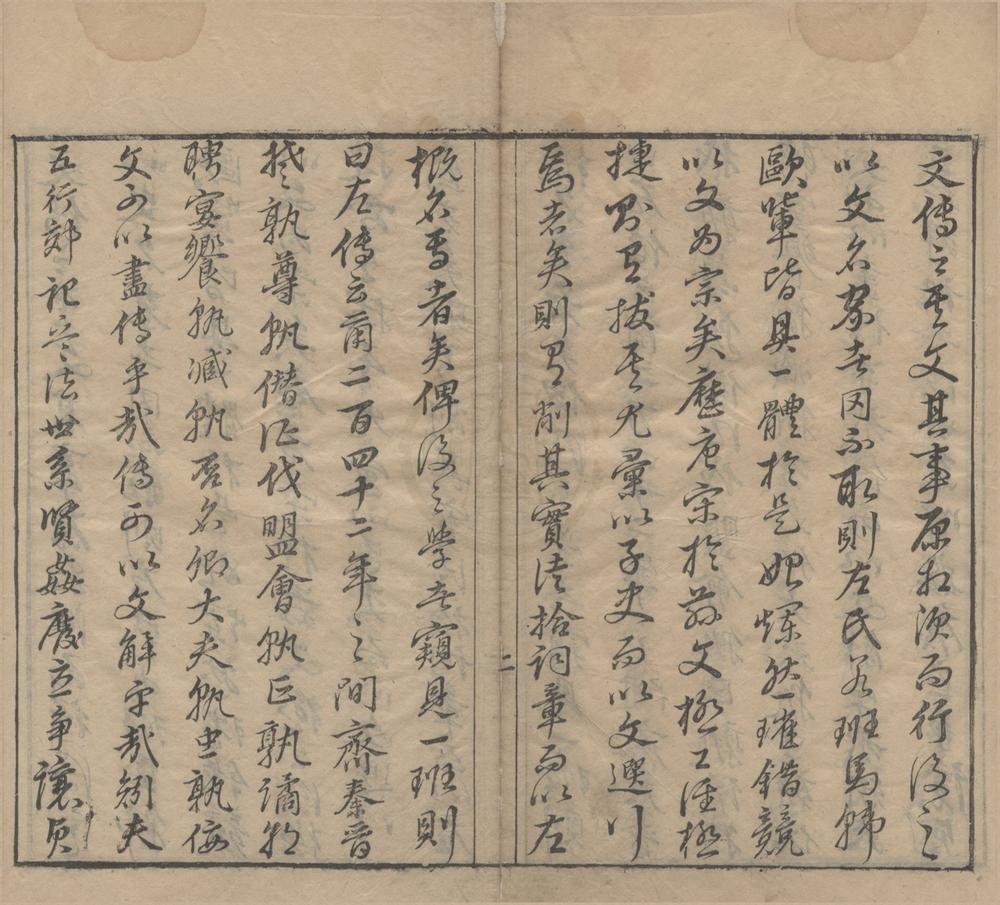 文傳之與文其事原相須而行後之
以文名家者罔不取則左氏若班馬韓
歐輩皆具一體於是始爛然璀錯競
以文為宗矣歷唐宋於茲文極工徑極
捷則有拔其尤彙以子史而以文選行
焉者矣則有削其實徒拾詞章而以左
二
概名焉者矣俾後之學者窺見一班則
曰左傳云爾二百四十二年之間齊秦晉
楚孰尊孰僭征伐盟會孰正孰譎朝
聘宴饗孰臧孰否名卿大夫孰忠孰佞
文可以盡傳乎哉傳可以文解乎哉矧夫
五行郊祀兵法世系賢姦廢立爭讓貞